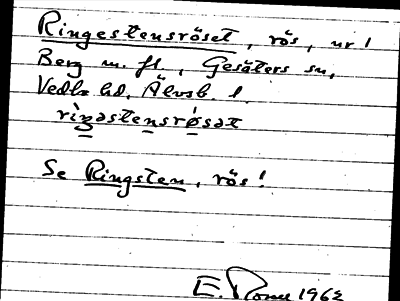 Ringestensröset, rös, nr 1
Berg m. fl., Gesäters sn,
Vedbo hd, Älvsb. l.
rìŋəstensrø̀sət
Se Ringsten, rös!
E. 1962